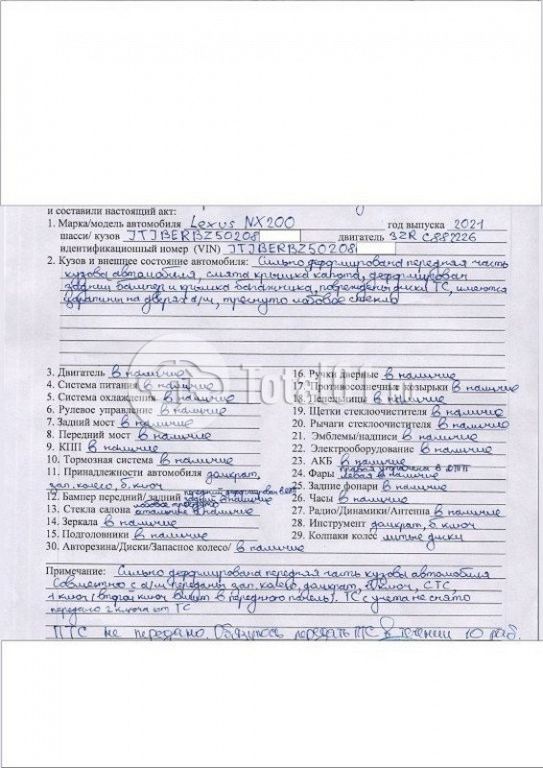 и составили настоящий акт:
1. Марка/модель автомобиля Lexus NX200 год выпуска 2021
шасси/ кузов JTJBERBZ50208 двигатель 3ZR C882226
идентификационный номер (VIN) JTJBERBZ50208
2. Кузов и внешнее состояние автомобиля: Сильно деформирована передняя часть
кузова автомобиля, смята крышка капота, деформирован
задний бампер и крышка багажника, повреждены диски ТС, имеются
царапины на дверях а/м, треснуто лобовое стекло
3. Двигатель в наличие
4. Система питания в наличие
5. Система охлаждения в наличие
6. Рулевое управление в наличие
7. Задний мост в наличие
8. Передний мост в наличие
9. КПП в наличие
10. Тормозная система в наличие
11. Принадлежности автомобиля домкрат,
зап. колесо, б. ключ
12. Бампер передний/ задний передний деформирован в ДТП
задний в наличие
13. Стекла салона лобовое треснуто
остальные в наличие
14. Зеркала в наличие
15. Подголовники в наличие
16. Ручки дверные в наличие
17. Противосолнечные козырьки в наличие
18. Пепельницы в наличие
19. Щетки стеклоочистителя в наличие
20. Рычаги стеклоочистителя в наличие
21. Эмблемы/надписи в наличие
22. Электрооборудование в наличие
23. АКБ в наличие
24. Фары правая утрачена в ДТП
левая в наличие
25. Задние фонари в наличие
26. Часы в наличие
27. Радио/Динамики/Антенна в наличие
28. Инструмент домкрат, б. ключ
29. Колпаки колес литые диски
30. Авторезина/Диски/Запасное колесо/ в наличие
Примечание: Сильно деформирована передняя часть кузова автомобиля
Совместно с а/м переданы зап. колесо, домкрат, б/ключ, СТС,
1 ключ (второй ключ в передней панель). ТС с учета не снято
передано 2 ключа от ТС
ПТС не передано. Обязуюсь передать ПТС в течении 10 раб.
Total